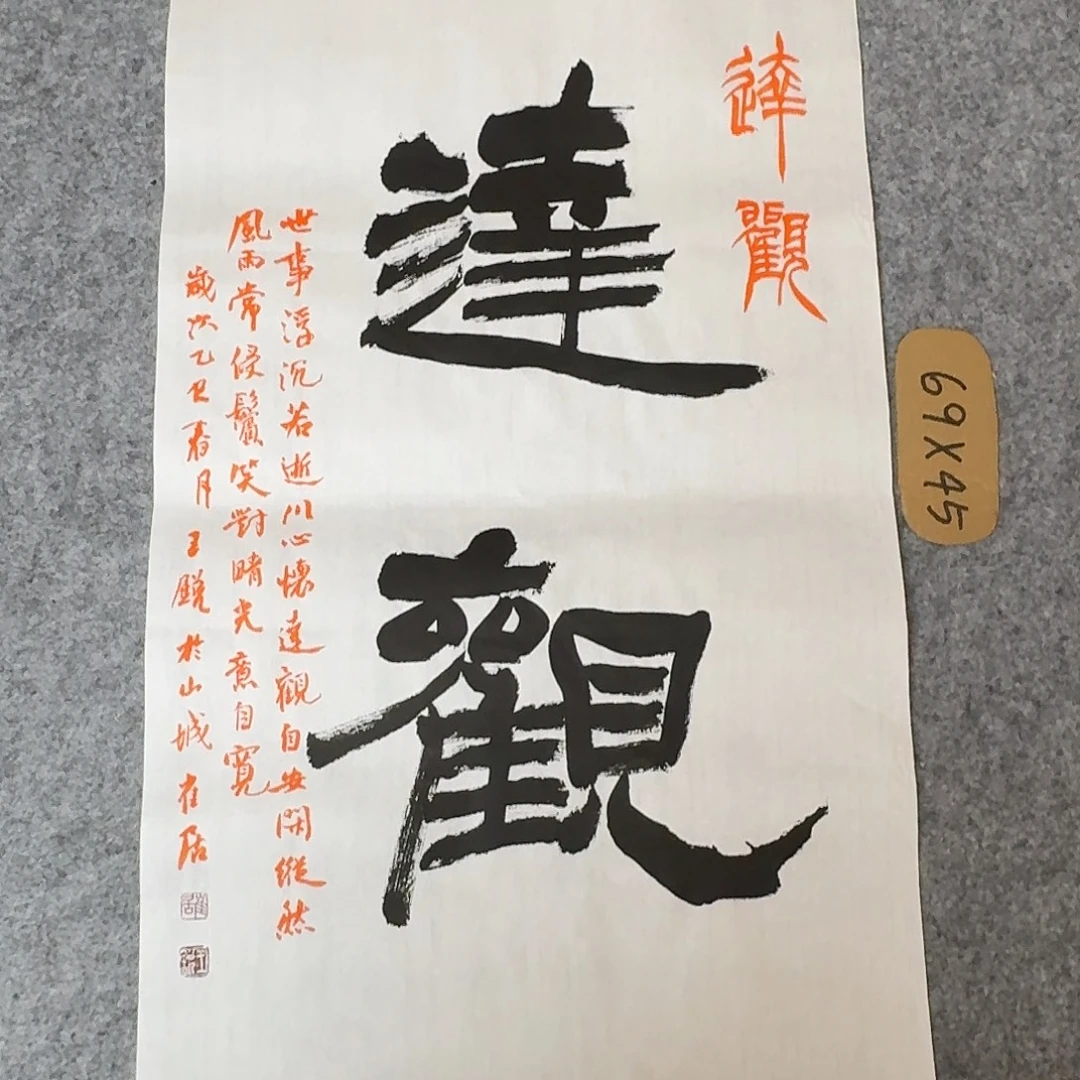 達觀
達觀
世事浮沉若逝川心懷達觀自安閑縱然
風雨常侵鬢笑對晴光意自寬
歲次乙巳春月王於山城雀居
69X45